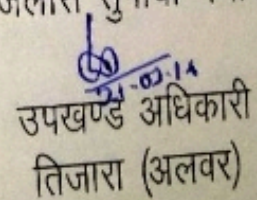 21-07-14
उपखण्ड अधिकारी
तिजारा (अलवर)